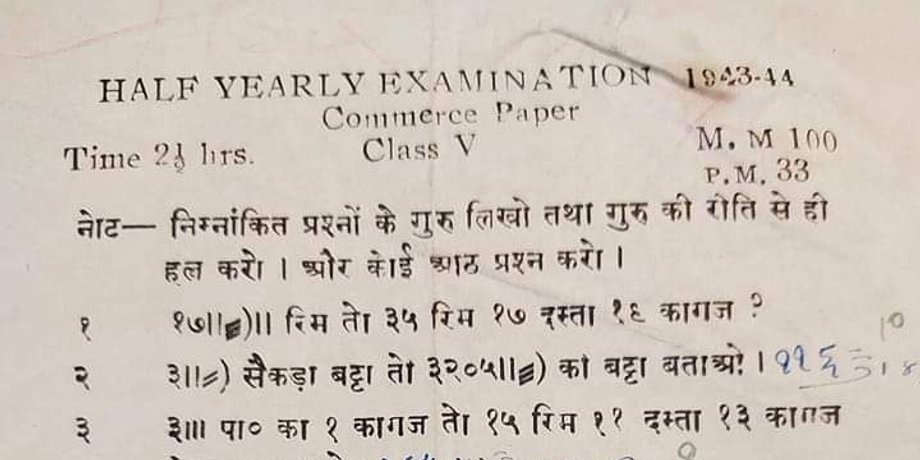 HALF YEARLY EXAMINATION 1943-44
Commerce Paper
Time 2½ hrs. Class V M. M 100
P. M. 33
नोट— निम्नांकित प्रश्नों के गुरु लिखो तथा गुरु की रीति से ही
हल करो । और कोई आठ प्रश्न करो ।
१ १७॥≡)॥ रिम तो ३५ रिम १७ दस्ता १६ कागज ?
२ ३॥=) सैकड़ा बट्टा तो ३२०५॥≡) का बट्टा बताओ ।
३ ३॥। पा० का १ कागज तो १५ रिम ११ दस्ता १३ कागज